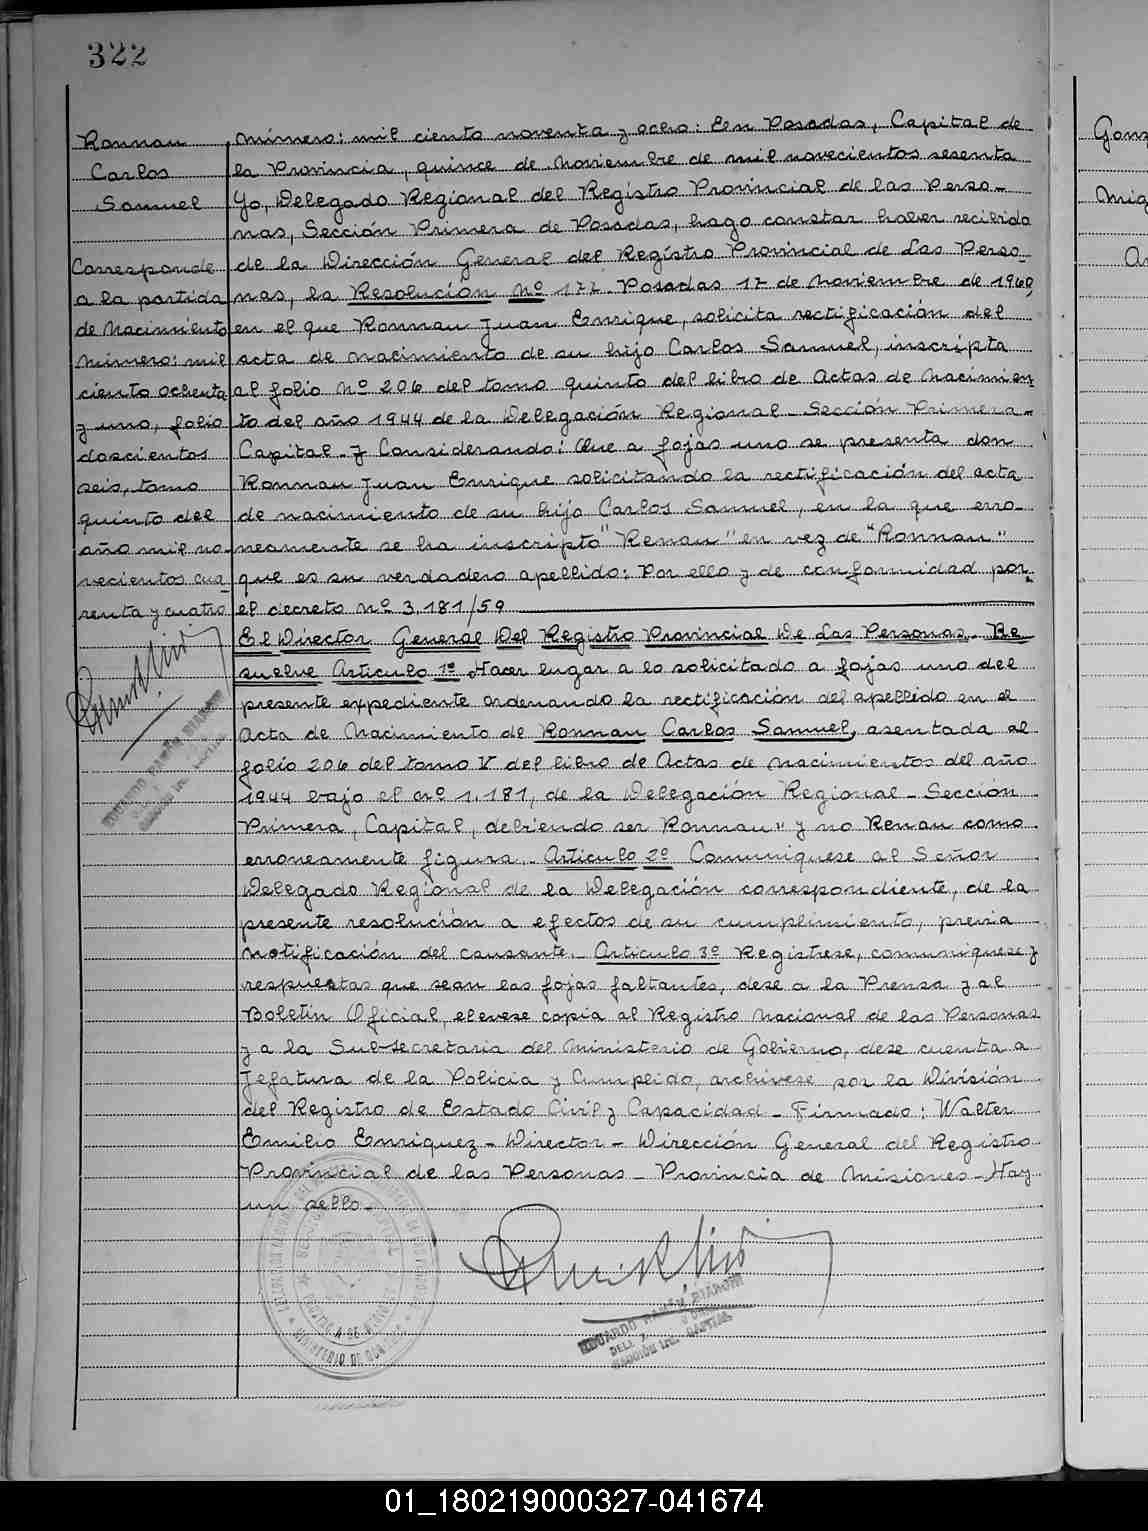 322
Ronnau
Carlos
Samuel
Corresponde
a la partida
de Nacimiento
Número: mil
ciento ochenta
y uno, folio
doscientos
seis, tomo
quinto del
año mil no-
vecientos cua-
renta y cuatro
Número: mil ciento noventa y ocho: En Posadas, Capital de
la Provincia, quince de Noviembre de mil novecientos sesenta
Yo, Delegado Regional del Registro Provincial de las Perso-
nas, Sección Primera de Posadas, hago constar haber recibido
de la Dirección General del Registro Provincial de Las Perso-
nas, la Resolución Nº 177. Posadas 17 de Noviembre de 1960,
en el que Ronnau Juan Enrique, solicita rectificación del
acta de nacimiento de su hijo Carlos Samuel, inscripta
al folio Nº 206 del tomo quinto del libro de Actas de Nacimien-
to del año 1944 de la Delegación Regional - Sección Primera-
Capital - y Considerando: Que a fojas uno se presenta don
Ronnau Juan Enrique solicitando la rectificación del acta
de nacimiento de su hijo Carlos Samuel, en la que erro-
neamente se ha inscripto "Renau" en vez de "Ronnau"
que es su verdadero apellido: Por ello y de conformidad por
el decreto nº 3.181/59
El Director General Del Registro Provincial De Las Personas. Re
suelve Articulo 1º Hacer lugar a lo solicitado a fojas uno del
presente expediente ordenando la rectificación del apellido en el
Acta de Nacimiento de Ronnau Carlos Samuel, asentada al
folio 206 del tomo V del libro de Actas de nacimientos del año
1944 bajo el nº 1.181, de la Delegación Regional - Sección
Primera, Capital, debiendo ser Ronnau" y no Renau como
erroneamente figura. Articulo 2º Comuniquese al Señor
Delegado Regional de la Delegación correspondiente, de la
presente resolución a efectos de su cumplimiento, previa
notificación del causante. Articulo 3º Registrese, comuniquese y
respuestas que sean las fojas faltantes, dese a la Prensa y al
Boletín Oficial, elevese copia al Registro Nacional de las Personas
y a la Sub-secretaria del Ministerio de Gobierno, dese cuenta a
Jefatura de la Policia y Cumplido, archivese por la División
del Registro de Estado Civil y Capacidad - Firmado: Walter
Emilio Enriquez - Director - Dirección General del Registro
Provincial de las Personas - Provincia de Misiones - Hay
un sello -
EDUARDO RAMÓN
SECCIÓN 1ra. CAPITAL
Gon
Mig
01_180219000327-041674